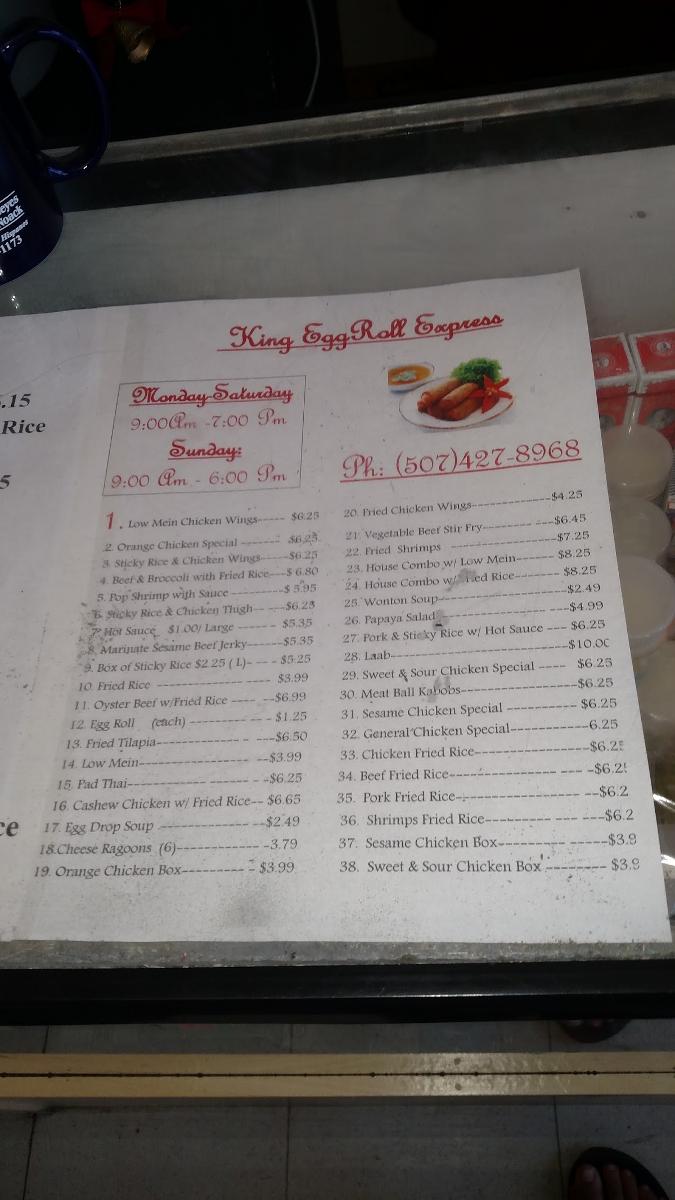 eyes
Noack
Hispanos
1173
.15
Rice
5
ce
King EggRoll Express
Monday-Saturday
9:00Am -7:00 Pm
Sunday:
9:00 Am - 6:00 Pm
Ph: (507)427-8968
1. Low Mein Chicken Wings----- $6.25
2. Orange Chicken Special ------- $6.25
3. Sticky Rice & Chicken Wings-----$6.25
4. Beef & Broccoli with Fried Rice---$ 6.80
5. Pop Shrimp with Sauce ----------$ 5.95
6. Sticky Rice & Chicken Thgh-- ---$6.25
7. Hot Sauce $1.00/ Large ------- $5.35
8. Marinate Sesame Beef Jerky-----$5.35
9. Box of Sticky Rice $2.25 ( L)- - - - $5.25
10. Fried Rice ---------------- $3.99
11. Oyster Beef w/Fried Rice ---- --$6.99
12. Egg Roll (each) ---------- -- - $1.25
13. Fried Tilapia------------- - ---$6.50
14. Low Mein------------------ --$3.99
15. Pad Thai----------- -------- - --$6.25
16. Cashew Chicken w/ Fried Rice-- $6.65
17. Egg Drop Soup ----------------$2.49
18.Cheese Ragoons (6)------------ -3.79
19. Orange Chicken Box--------- - $3.99
20. Fried Chicken Wings-------------$4.25
21. Vegetable Beef Stir Fry-------- ---$6.45
22. Fried Shrimps ----------------$7.25
23. House Combo w/ Low Mein------$8.25
24. House Combo w/ Fried Rice-------$8.25
25. Wonton Soup-------------------$2.49
26. Papaya Salad ------------ ---$4.99
27. Pork & Sticky Rice w/ Hot Sauce --- $6.25
28. Laab-------------------------$10.00
29. Sweet & Sour Chicken Special ---- $6.25
30. Meat Ball Kabobs----------------$6.25
31. Sesame Chicken Special --------- $6.25
32. General Chicken Special-----------6.25
33. Chicken Fried Rice----------------$6.25
34. Beef Fried Rice--------------- --- -$6.25
35. Pork Fried Rice-------------- --- --$6.2
36. Shrimps Fried Rice--------- --- ---$6.2
37. Sesame Chicken Box---------- -----$3.9
38. Sweet & Sour Chicken Box --------- $3.9